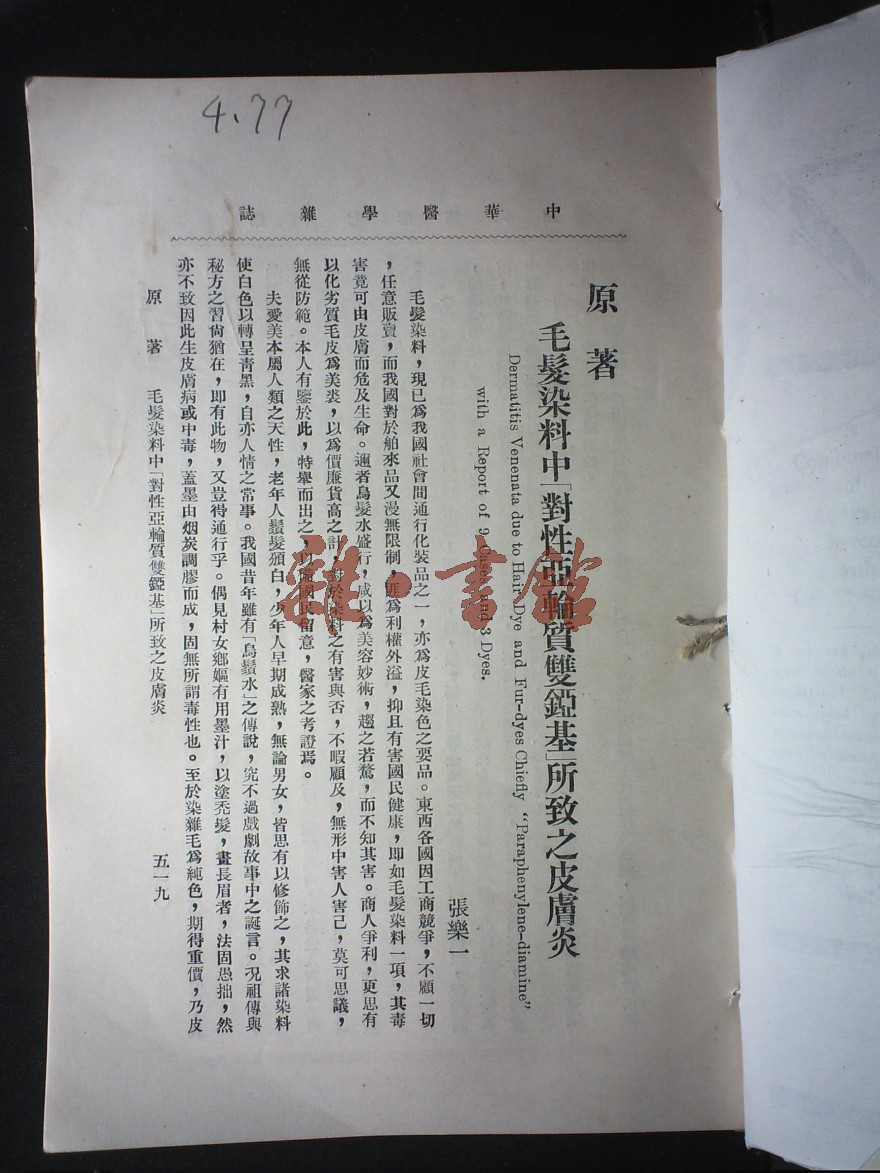 4.77
中華醫學雜誌
原著
毛髮染料中「對性亞輪質雙錏基」所致之皮膚炎
Dermatitis Venenata due to Hair Dye and Fur-dyes Chiefly "Paraphenylene-diamine"
with a Report of 9 Cases and 3 Dyes.
張樂一
毛髮染料，現已爲我國社會間通行化裝品之一，亦爲皮毛染色之要品。東西各國因工商競爭，不顧一切
，任意販賣，而我國對於舶來品又漫無限制，匪爲利權外溢，抑且有害國民健康，即如毛髮染料一項，其毒
害竟可由皮膚而危及生命。邇者烏髮水盛行，咸以爲美容妙術，趨之若鶩，而不知其害。商人爭利，更思有
以化劣質毛皮爲美裘，以爲價廉貨高之計，對於染料之有害與否，不暇顧及，無形中害人害己，莫可思議，
無從防範。本人有鑒於此，特舉而出之，以備國民留意，醫家之考證焉。
夫愛美本屬人類之天性，老年人鬚髮頒白，少年人早期成熟，無論男女，皆思有以修飾之，其求諸染料
使白色以轉呈靑黑，自亦人情之常事。我國昔年雖有「烏鬚水」之傳說，究不過戲劇故事中之誕言。況祖傳與
秘方之習尙猶在，即有此物，又豈得通行乎。偶見村女鄉嫗有用墨汁，以塗禿髮，畫長眉者，法固愚拙，然
亦不致因此生皮膚病或中毒，蓋墨由烟炭調膠而成，固無所謂毒性也。至於染雜毛爲純色，期得重價，乃皮
原著　毛髮染料中「對性亞輪質雙錏基」所致之皮膚炎
五一九
雅·書館